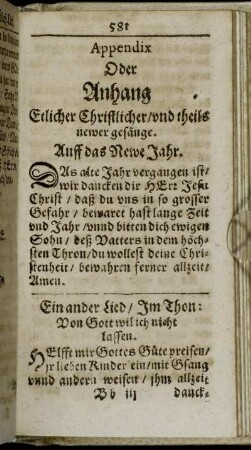 581
Appendix
Oder
Anhang
Etlicher Christlicher/vnd theils
newer gesänge.
Auff das Newe Jahr.
DAs alte Jahr vergangen ist/
wir dancken dir HErr Jesu
Christ / daß du vns in so grosser
Gefahr / bewaret hast lange Zeit
vnd Jahr /vnnd bitten dich ewigen
Sohn / deß Vatters in dem höch-
sten Thron/du wollest deine Chri-
stenheit / bewahren ferner allzeit/
Amen.
Ein ander Lied / Im Thon:
Von Gott wil ich nicht
lassen.
HElfft mir Gottes Güte preisen/
jr lieben Kinder ein/mit Gsang
vnnd andern weisen / jhm allzeit
Bb iij
danck-